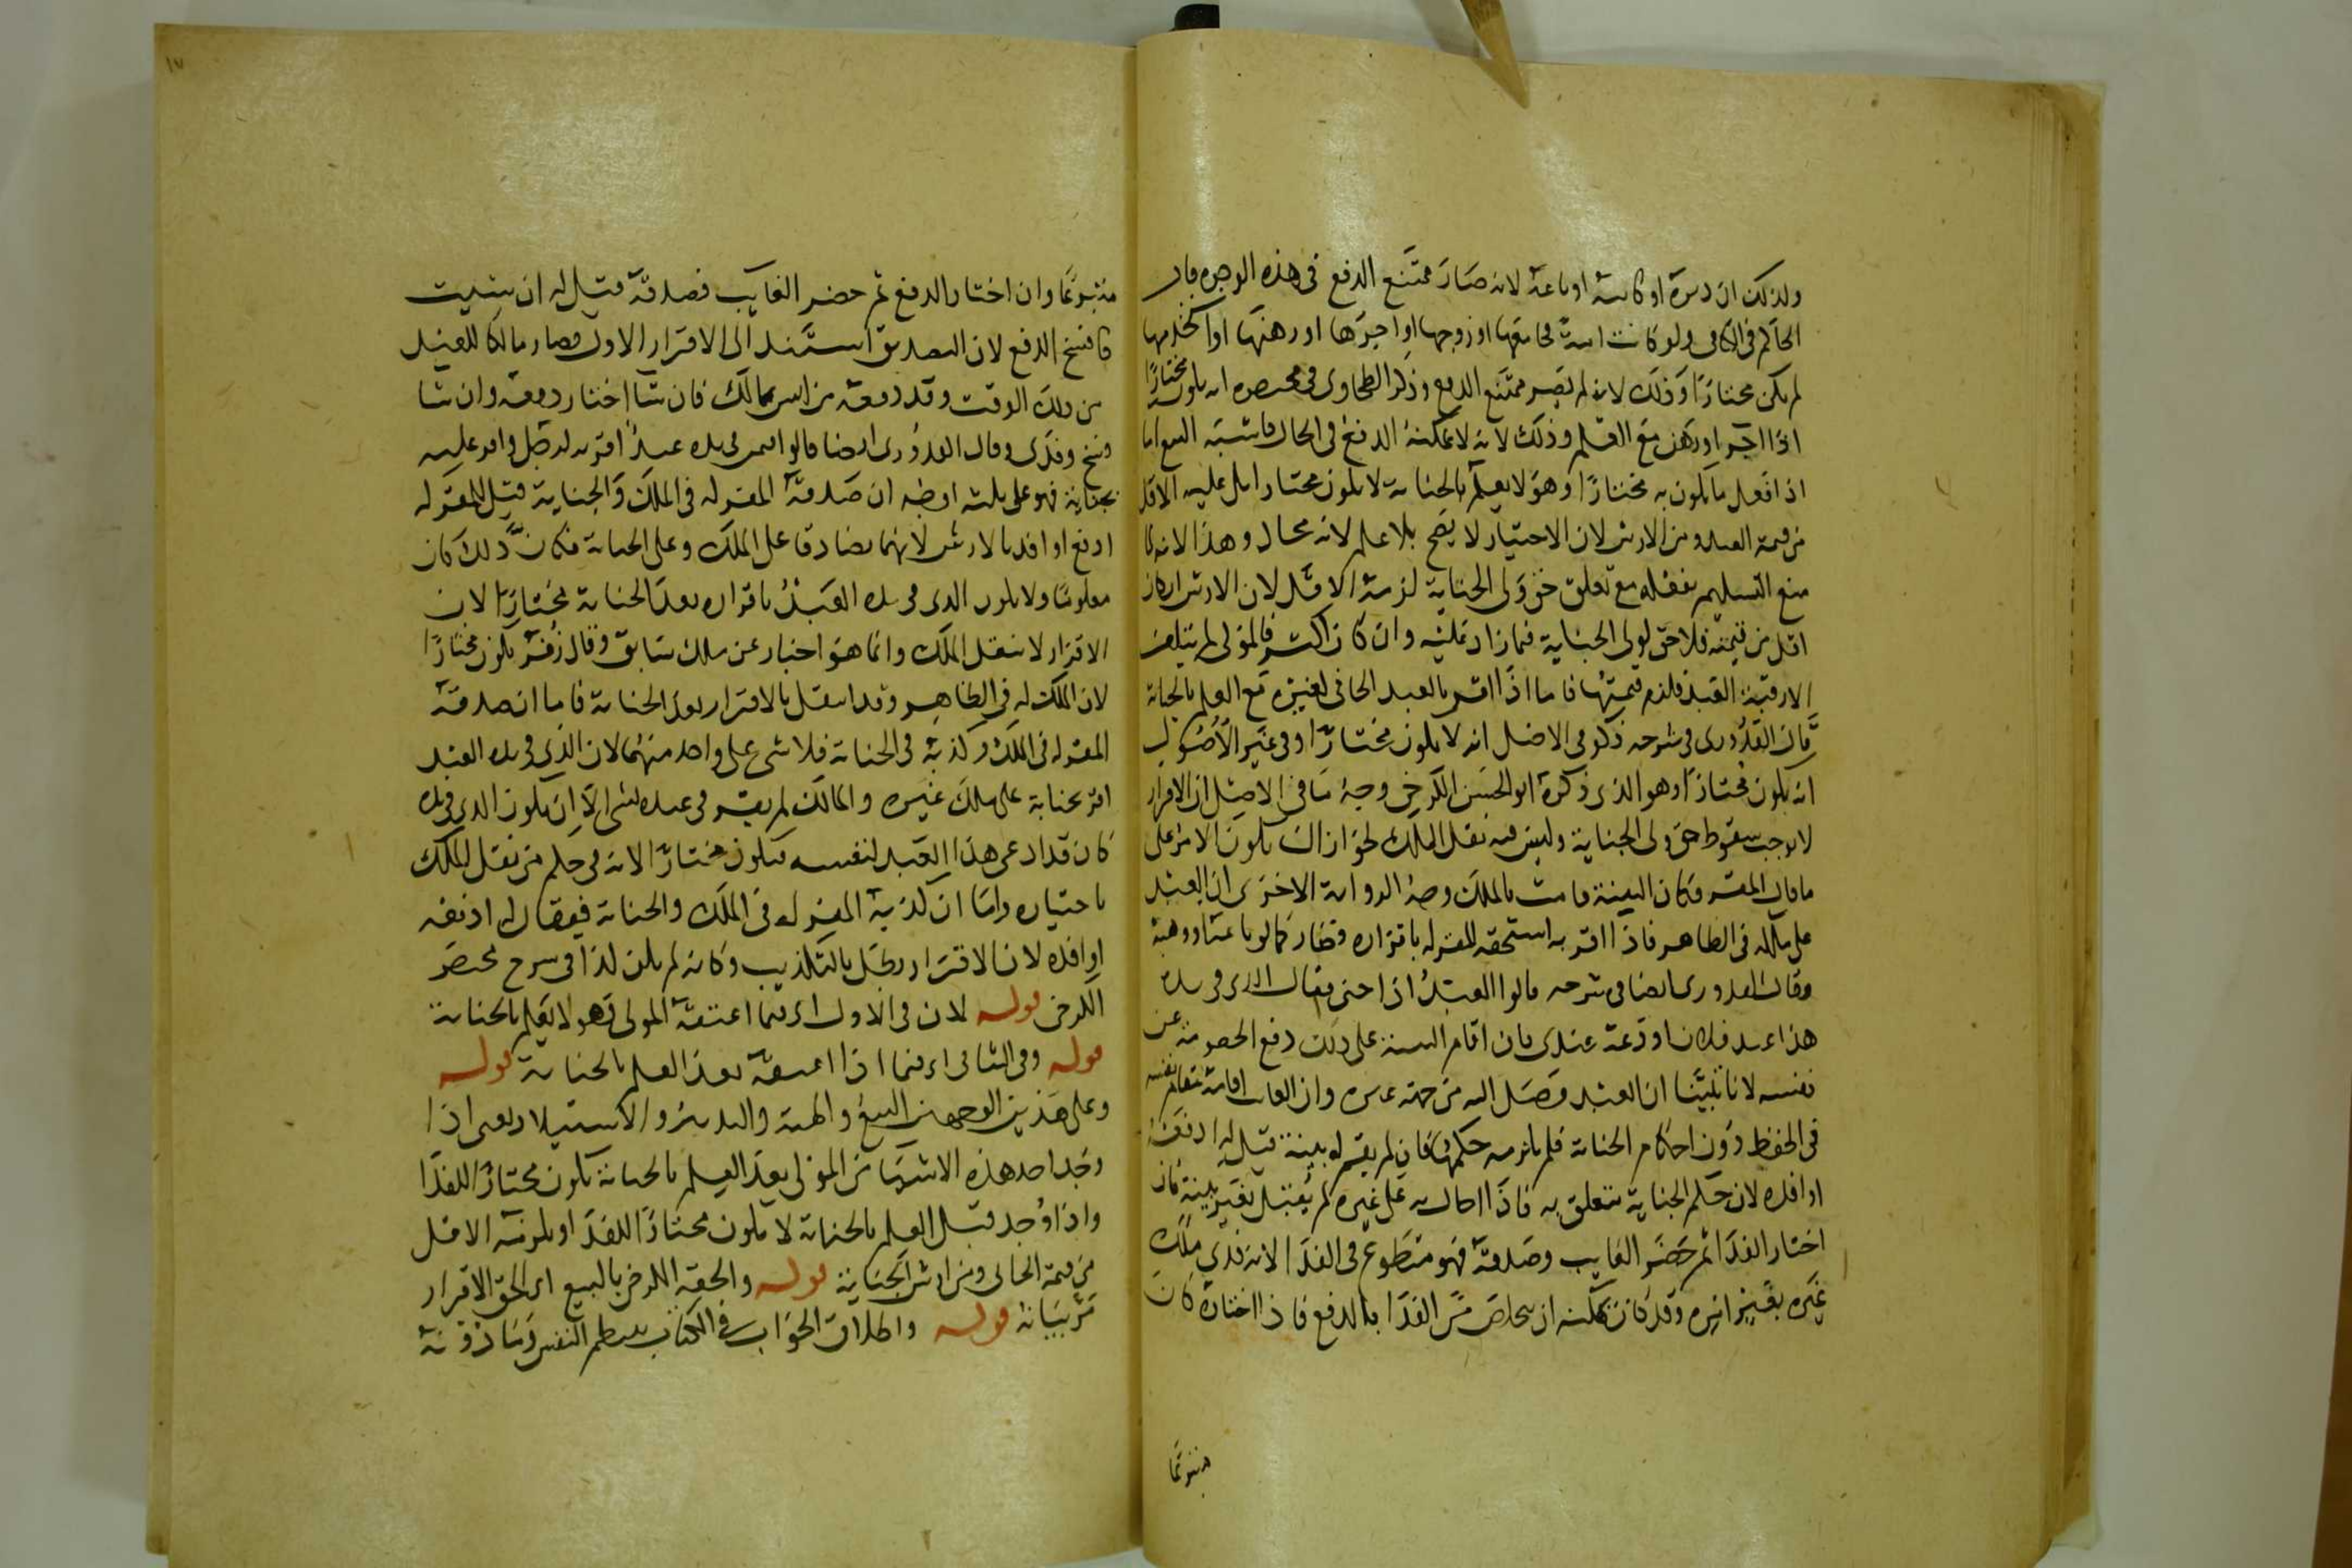 ولذلك ان دبره او كاتبه او باعه لانه صار ممتنع الدفع فى هذه الوجوه قال
الحاكم فى الكافى ولو كانت امة فجامعها او زوجها او اجرها او رهنها او استخدمها
لم يكن مختارا وذلك لانه لم يصر ممتنع الدفع وذكر الطحاوى فى مختصره انه يكون مختارا
اذا اجر او رهن مع العلم وذلك لانه لا يمكنه الدفع فى الحال فاشبه البيع اما
اذا فعل ما يكون به مختارا وهو لا يعلم بالجناية لا يكون مختارا بل عليه الاقل
من قيمة العبد ومن الارش لان الاختيار لا يصح بلا علم لانه محال وهذا لانه لما
منع التسليم بفعله مع تعلق حق ولى الجناية لزمه الاقل لان الارش ان كان
اقل من قيمته فلا حق لولى الجناية فيما زاد عليه وان كان اكثر فالمولى لم يتلف
الا رقبة العبد فلزم قيمتها فاما اذا اقر بالعبد الجانى لغيره مع العلم بالجناية
قال القدورى فى شرحه ذكر فى الاصل انه لا يكون مختارا وفى غير الاصول
انه يكون مختارا وهو الذى ذكره ابو الحسن الكرخى وجه ما فى الاصل ان الاقرار
لا يوجب سقوط حق ولى الجناية وليس فيه نقل الملك لجواز ان يكون الامر على
ما قال المقر فكان البينة قامت بالملك وجه الرواية الاخرى ان العبد
على ملكه فى الظاهر فاذا اقر به استحقه المقر له باقراره فصار كما لو باعه او وهبه
وقال القدورى ايضا فى شرحه قالوا العبد اذا جنى فقال الذى فى يده
هذا عبد فلان اودعه عندى فان اقام البينة على ذلك دفع الخصومة عن
نفسه لانا تبينا ان العبد وصل اليه من جهة غيره وان الغايب اقامه مقام نفسه
فى الحفظ دون احكام الجناية فلم يلزمه حكمها فان لم يقم له بينة قيل له ادفعه
او افده لان حكم الجناية يتعلق به فاذا احال به على غيره لم يقبل بغير بينة فان
اختار الفدا ثم حضر الغايب وصدقه فهو متطوع فى الفدا لانه فدى ملك
غيره بغير امره وقد كان يمكنه ان يتخلص من الفدا بالدفع فاذا اختاره كان
متبرعا
متبرعا وان اختار الدفع ثم حضر الغايب فصدقه قيل له ان شيت
فافسخ الدفع لان التصديق استند الى الاقرار الاول فصار مالكا للعبد
من ذلك الوقت وقد دفعه من ليس بمالك فان شا اختار دفعه وان شا
فسخ وفدى وقال القدورى ايضا قالوا فيمن فى يده عبد اقر به لرجل واقر عليه
بجناية فهو على ثلثة اوجه ان صدقه المقر له فى الملك والجناية قيل للمقر له
ادفع او افد بالارش لانهما تصادقا على الملك وعلى الجناية فكان ذلك كان
معلوما ولا يكون الذى فى يده العبد باقراره بعد الجناية مختارا لان
الاقرار لا ينقل الملك وانما هو اخبار عن ملك سابق وقال زفر يكون مختارا
لان الملك له فى الظاهر وقد انتقل بالاقرار بعد الجناية فاما ان صدقه
المقر له فى الملك وكذبه فى الجناية فلا شى على واحد منهما لان الذى فى يده العبد
اقر بجناية على ملك غيره والمالك لم يقر فى عبده بشى الا ان يكون الذى فى يده
كان قد ادعى هذا العبد لنفسه فيكون مختارا لانه فى حكم من نقل الملك
باختياره واما ان كذبه المقر له فى الملك والجناية فيقال له ادفعه
او افده لان الاقرار بطل بالتكذيب وكانه لم يكن كذا فى شرح مختصر
الكرخى قوله لان فى الاول اى فيما اعتقه المولى وهو لا يعلم بالجناية
قوله وفى الثانى اى فيما اذا اعتقه بعد العلم بالجناية قوله
وعلى هذين الوجهين البيع والهبة والتدبير والاستيلاد يعنى اذا
وجد احد هذه الاشيا من المولى بعد العلم بالجناية يكون مختارا للفدا
واذا وجد قبل العلم بالجناية لا يكون مختارا للفدا ويلزمه الاقل
من قيمة الجانى ومن ارش الجناية قوله والحقه الكرخى بالبيع اى الحق الاقرار
مر بيانه قوله واطلاق الجواب فى الكتاب ينتظم النفس وما دونه